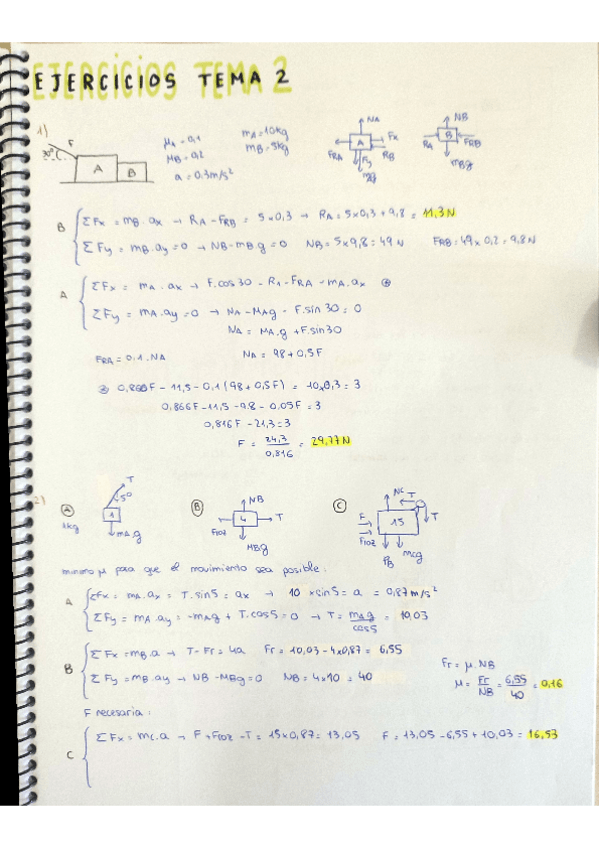 EJERCICIOS TEMA 2
1)
F
30°
A
B
μA = 0,1
μB = 0,2
a = 0.3m/s²
mA = 10kg
mB = 5kg
NA
A
Fx
FRA
Fy
RB
mg
NB
B
RA
FRB
mBg
B
ΣFx = mB.ax → RA - FRB = 5x0,3 → RA = 5x0,3+9,8 = 11,3 N
ΣFy = mB.ay = 0 → NB-mB.g = 0 NB = 5x9,8 = 49 N FRB = 49x0,2 = 9,8N
A
ΣFx = mA.ax → F.cos30 - RA - FRA = mA.ax
ΣFy = mA.ay = 0 → NA - MAg - F.sin 30 = 0
NA = MA.g + F.sin30
FRA = 0,1.NA NA = 98 + 0,5F
0,866F - 11,5 - 0,1 (98 + 0,5F) = 10x0,3 = 3
0,866F - 11,5 - 9,8 - 0,05F = 3
0,816F - 21,3 = 3
F = 24,3 / 0,816 = 29,77N
2)
A
T
5°
1
1kg
mA g
B
NB
4
T
Froz
MBg
C
NC
T
F
15
T
Froz
PB
mcg
minimo μ para que el movimiento sea posible:
A
ΣFx = mA.ax = T.sin5 = ax → 10 x sin5 = a = 0,87 m/s²
ΣFy = mA.ay = -mAg + T.cos5 = 0 → T = mAg / cos5 = 10,03
B
ΣFx = mB.a → T - Fr = 4a Fr = 10,03 - 4x0,87 = 6,55
ΣFy = mB.ay → NB - MBg = 0 NB = 4x10 = 40
Fr = μ.NB
μ = Fr / NB = 6,55 / 40 = 0,16
F necesaria:
C
ΣFx = mc.a → F + Froz - T = 15x0,87 = 13,05 F = 13,05 - 6,55 + 10,03 = 16,53